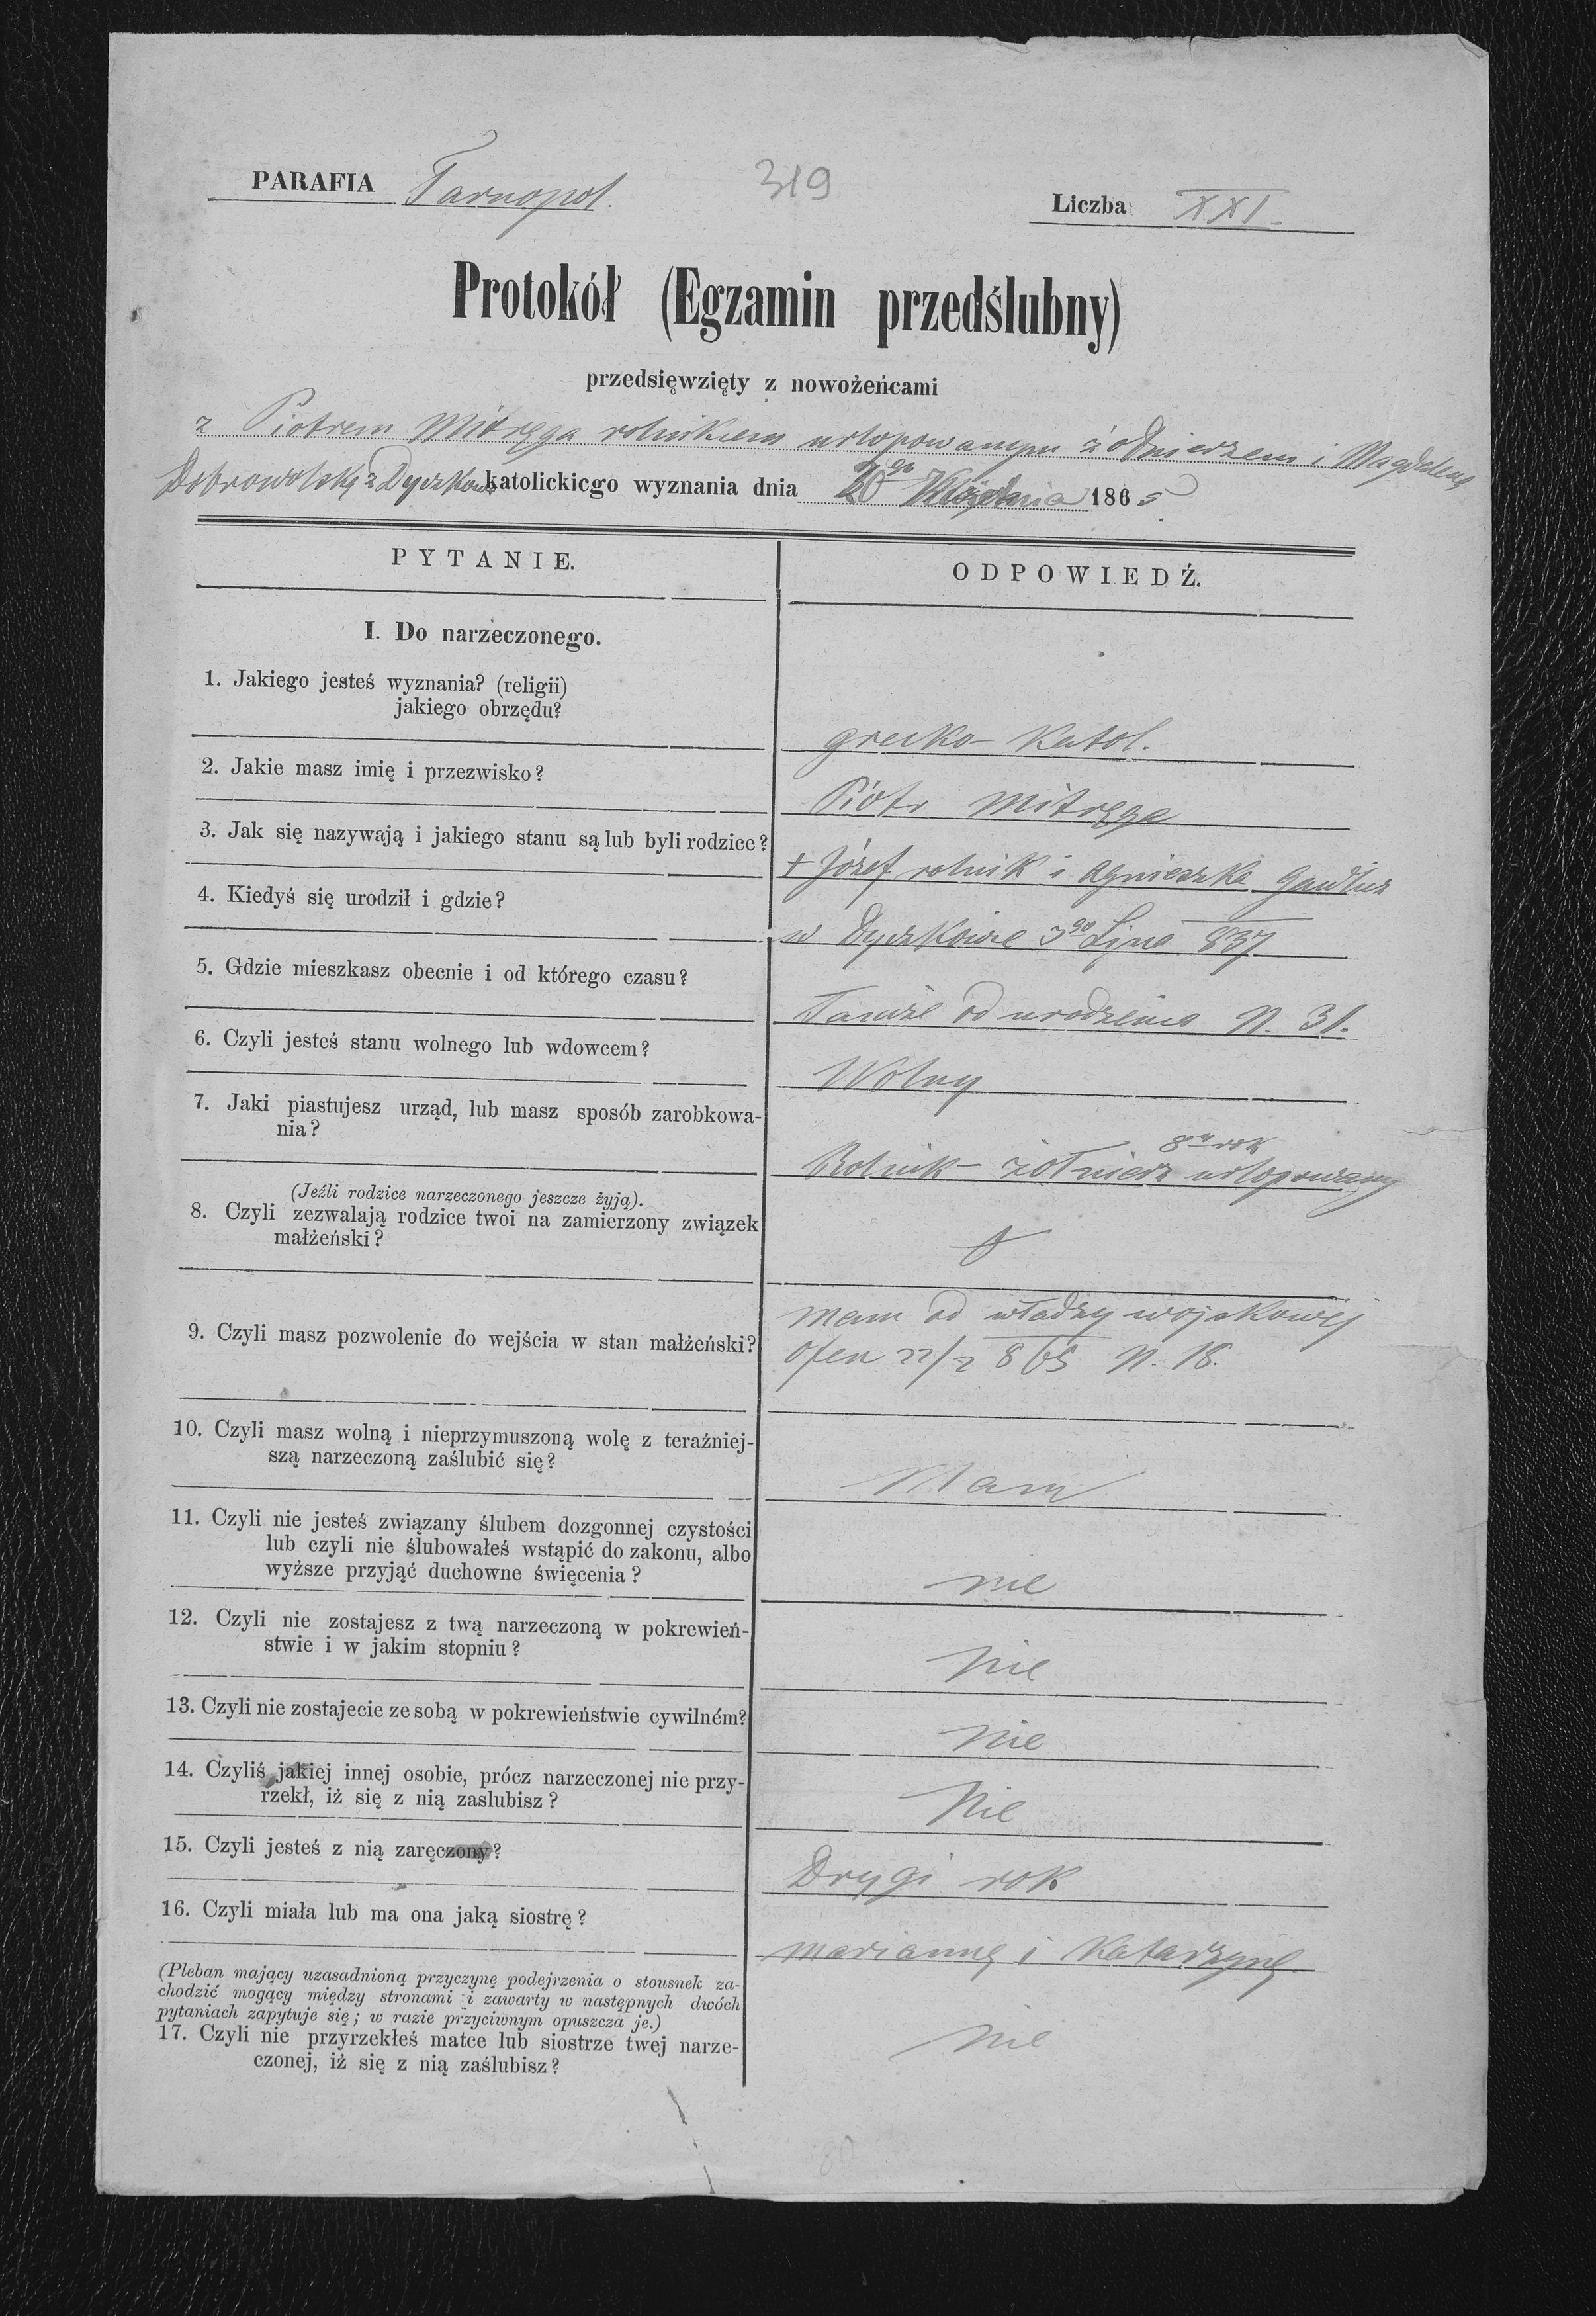 PARAFIA Tarnopol.
319
Liczba XXI.
Protokół (Egzamin przedślubny)
przedsięwzięty z nowożeńcami
z Piotrem Mitręga rolnikiem urlopowanym żołnierzem i Magdaleną
Dobrowolską z Dyczkowa katolickiego wyznania dnia 20go 1865
PYTANIE.
ODPOWIEDŹ.
I. Do narzeczonego.
1. Jakiego jesteś wyznania? (religii)
jakiego obrzędu?
grecko-katol.
2. Jakie masz imię i przezwisko?
Piotr Mitręga
3. Jak się nazywają i jakiego stanu są lub byli rodzice?
+ Józef rolnik i Agnieszka
4. Kiedyś się urodził i gdzie?
w Dyczkowie 3go 837
5. Gdzie mieszkasz obecnie i od którego czasu?
Tamże od urodzenia N. 31.
6. Czyli jesteś stanu wolnego lub wdowcem?
Wolny
7. Jaki piastujesz urząd, lub masz sposób zarobkowa-
nia?
8y rok
Rolnik - żołnierz urlopowany
(Jeźli rodzice narzeczonego jeszcze żyją).
8. Czyli zezwalają rodzice twoi na zamierzony związek
małżeński?
9. Czyli masz pozwolenie do wejścia w stan małżeński?
mam od władzy wojskowej
Ofen 22/2 865 N. 18.
10. Czyli masz wolną i nieprzymuszoną wolę z teraźniej-
szą narzeczoną zaślubić się?
Mam
11. Czyli nie jesteś związany ślubem dozgonnej czystości
lub czyli nie ślubowałeś wstąpić do zakonu, albo
wyższe przyjąć duchowne święcenia?
nie
12. Czyli nie zostajesz z twą narzeczoną w pokrewień-
stwie i w jakim stopniu?
nie
13. Czyli nie zostajecie ze sobą w pokrewieństwie cywilném?
nie
14. Czyliś jakiej innej osobie, prócz narzeczonej nie przy-
rzekł, iż się z nią zaslubisz?
Nie
15. Czyli jesteś z nią zaręczony?
Drygi rok
16. Czyli miała lub ma ona jaką siostrę?
Mariannę i Katarzynę
(Pleban mający uzasadnioną przyczynę podejrzenia o stousnek za-
chodzić mogący między stronami i zawarty w następnych dwóch
pytaniach zapytuje się; w razie przyciwnym opuszcza je.)
17. Czyli nie przyrzekłeś matce lub siostrze twej narze-
czonej, iż się z nią zaślubisz?
nie